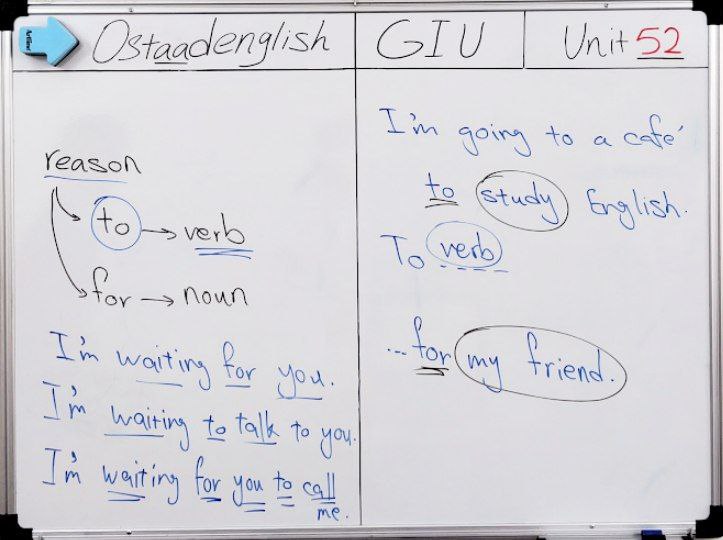 Ostaadenglish
GIU
Unit 52
reason
to → verb
for → noun
I'm waiting for you.
I'm waiting to talk to you.
I'm waiting for you to call
me.
I'm going to a café
to study English.
To verb
...for my friend.